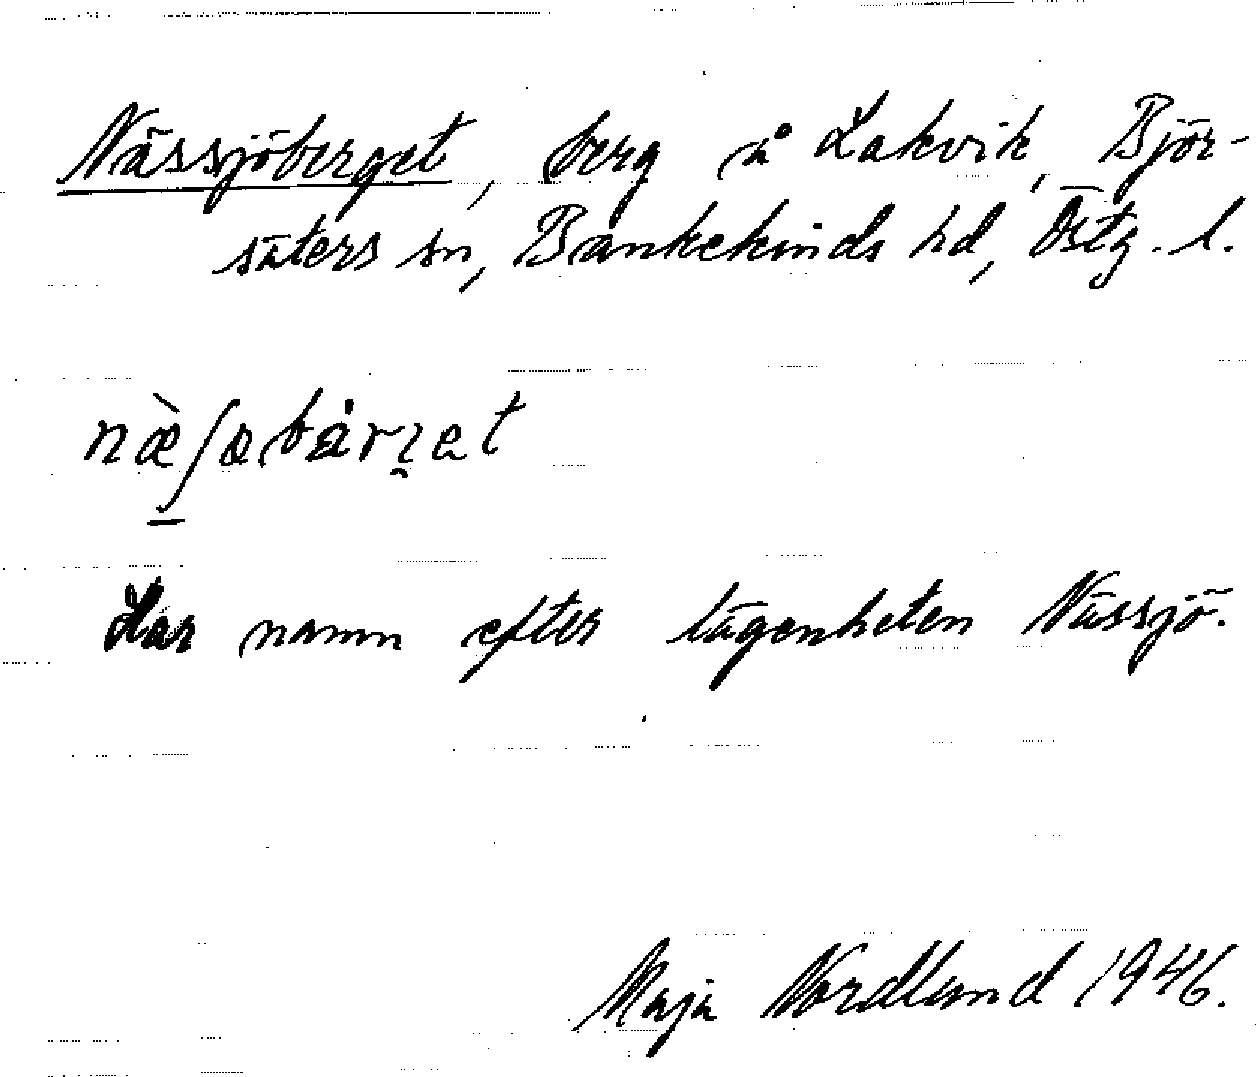 Nässjöberget, berg å Lakvik, Björ-
säters sn, Bankekinds hd, Östg. l.
Har namn efter lägenheten Nässjö.
Maja Nordlund 1946.